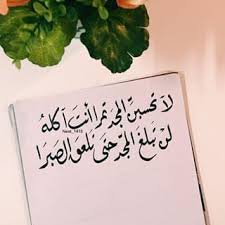 لا تحسبن المجد تمرا انت آكله
لن تبلغ المجد حتى تلعق الصبرا